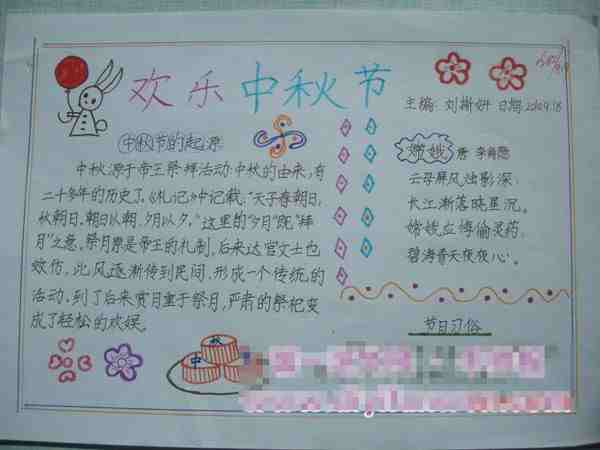 欢乐中秋节
主编: 刘 妍 日期
中秋节的起源
中秋源于帝王祭拜活动.中秋的由来,有
二十多年的历史了.《礼记》中记载:"天子春朝日,
秋朝日.朝日以朝,夕月以夕。"这里的"夕月"既"拜
月"之意,祭月原是帝王的礼制,后来达官文士也
效仿,此风逐渐传到民间,形成一个传统的
活动.到了后来赏月重于祭月,严肃的祭祀变
成了轻松的欢娱。
嫦娥 唐 李商隐
云母屏风烛影深,
长江渐落晓星沉。
嫦娥应悔偷灵药,
碧海青天夜夜心。
节日习俗
中
秋